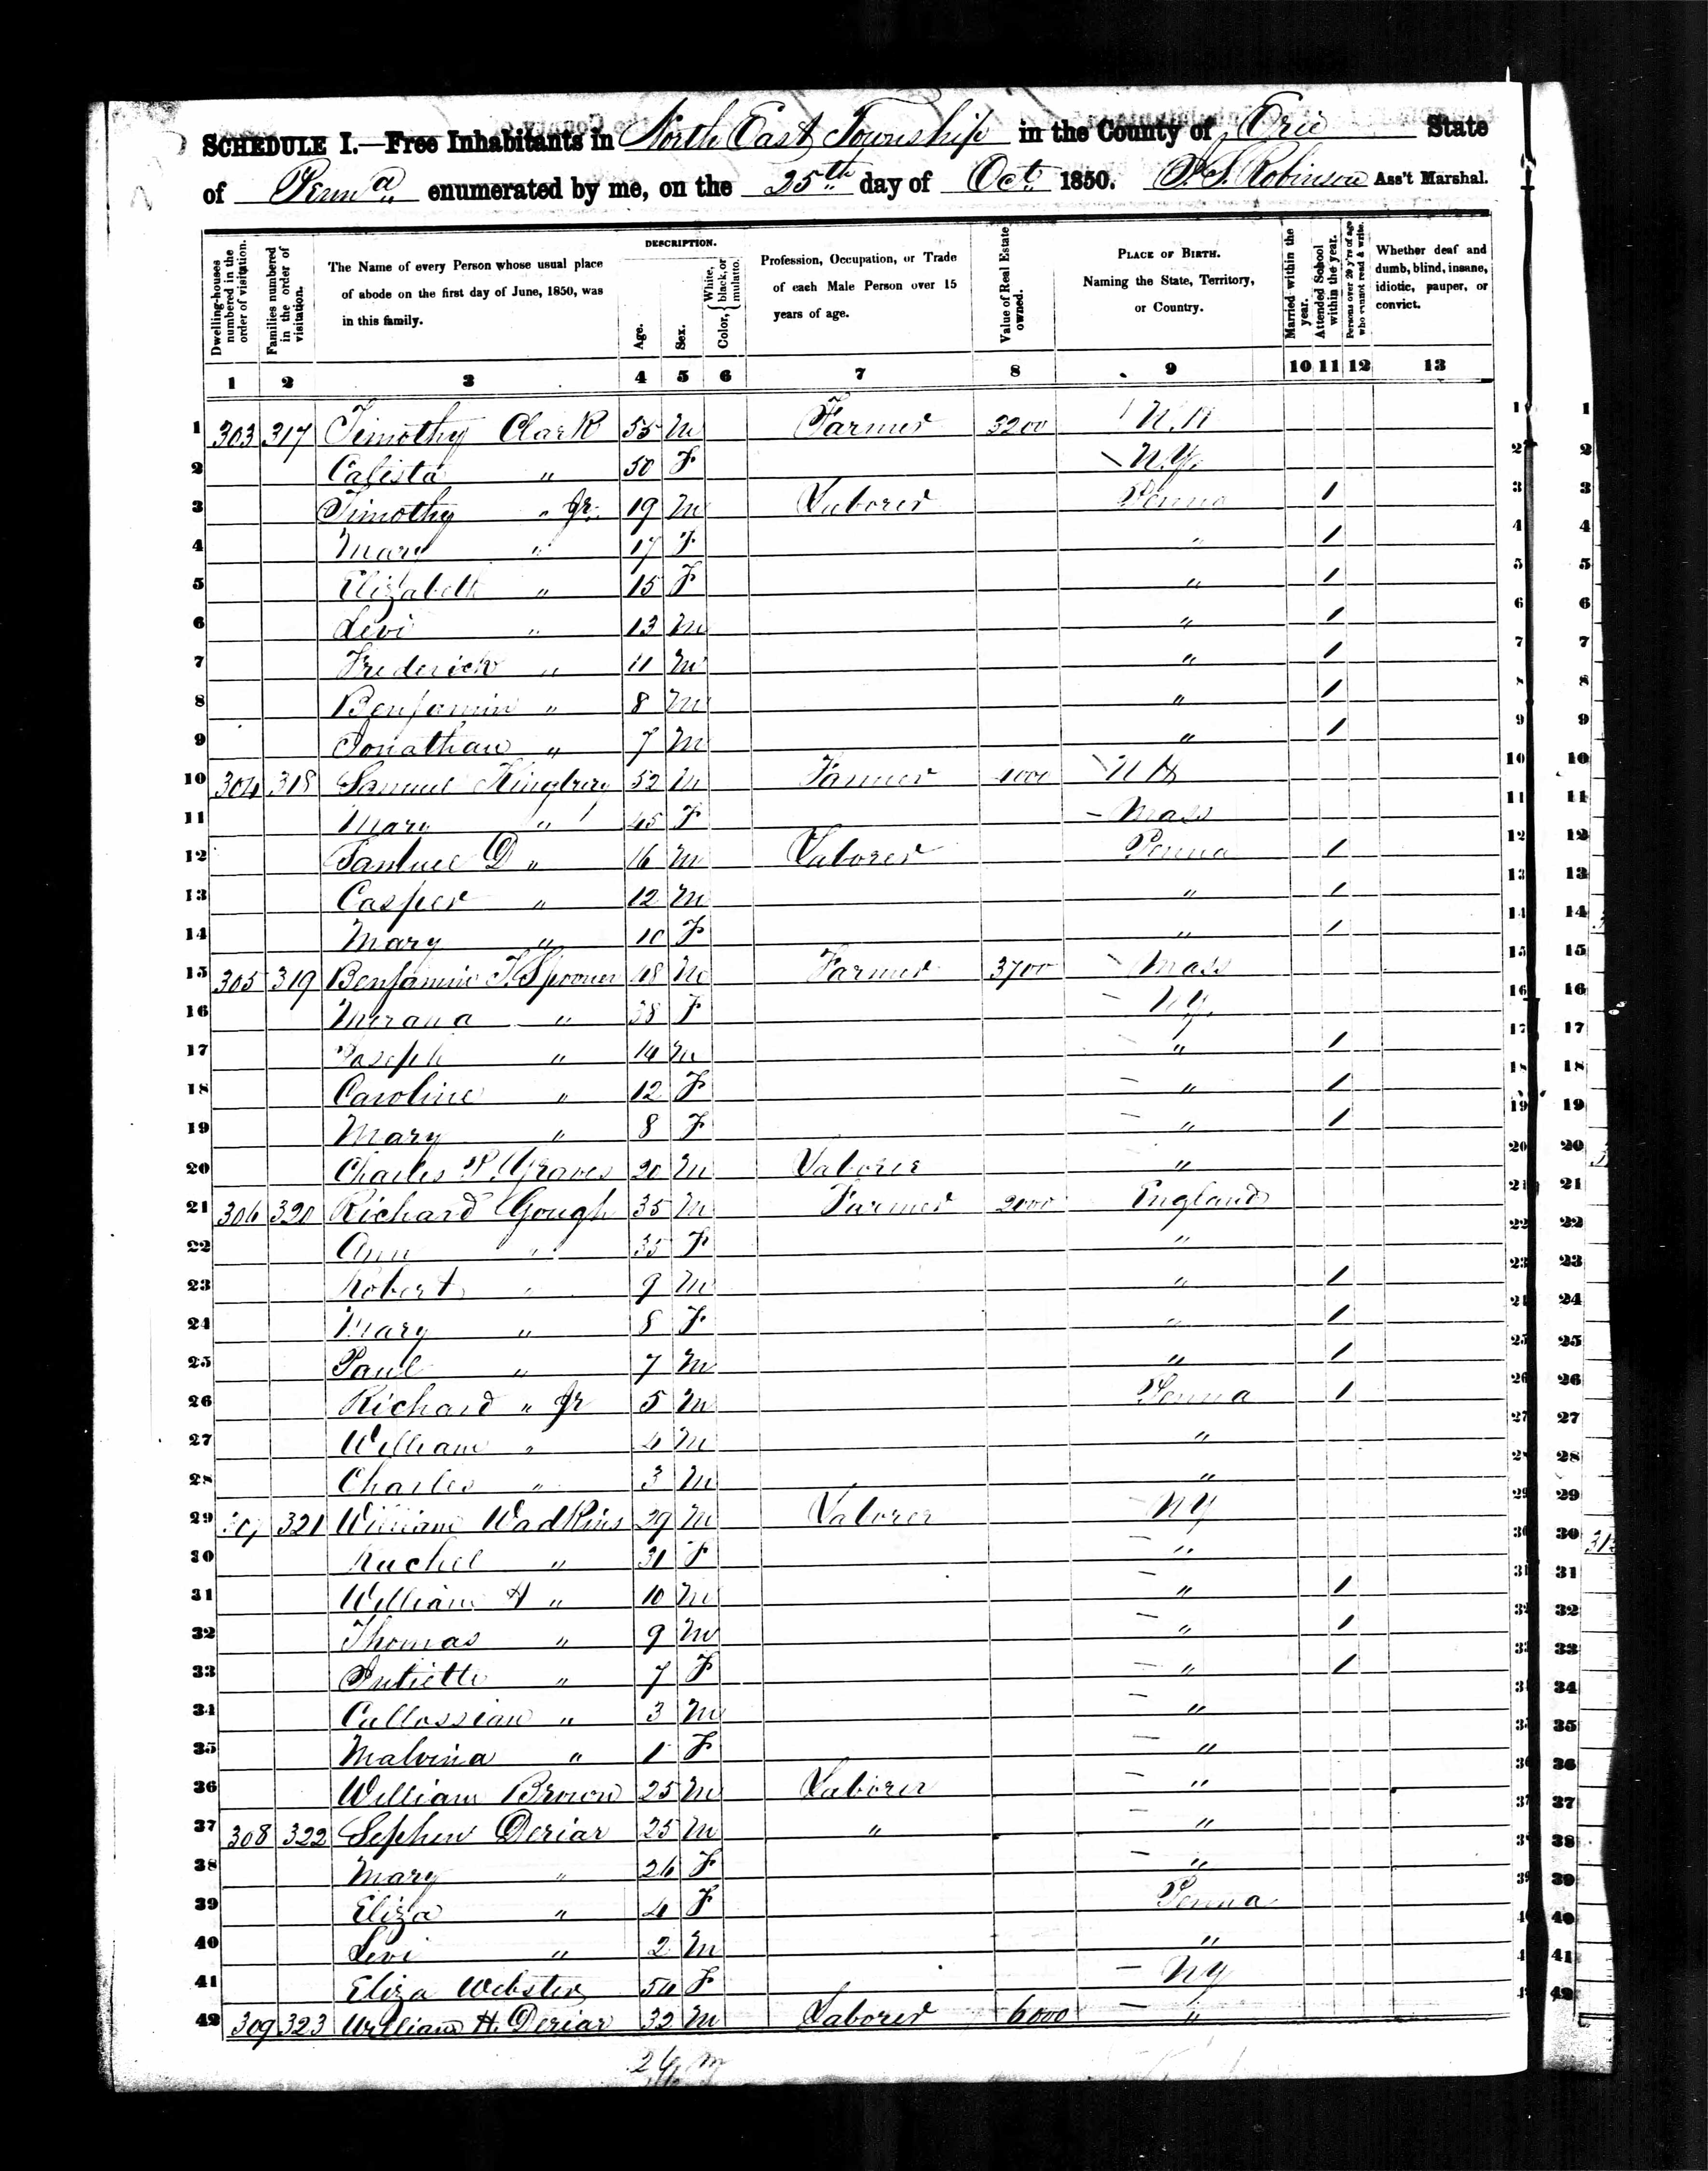 SCHEDULE I.—Free Inhabitants in North East Township in the County of Erie State
of Penna enumerated by me, on the 25th day of Oct. 1850. P.S. Robinson Ass't Marshal.
Dwelling-houses numbered in the order of visitation.
Families numbered in the order of visitation.
The Name of every Person whose usual place of abode on the first day of June, 1850, was in this family.
DESCRIPTION.
Age.
Sex.
Color, { White, black, or mulatto.
Profession, Occupation, or Trade of each Male Person over 15 years of age.
Value of Real Estate owned.
PLACE OF BIRTH. Naming the State, Territory, or Country.
Married within the year.
Attended School within the year.
Persons over 20 y'rs of age who cannot read & write.
Whether deaf and dumb, blind, insane, idiotic, pauper, or convict.
1 2 3 4 5 6 7 8 9 10 11 12 13
1 303 317 Timothy Clark 55 M Farmer 3200 1
2 Calista " 50 F N.Y. 2
3 Timothy " Jr. 19 M Laborer Penna / 3
4 Mary " 17 F " / 4
5 Elizabeth " 15 F " / 5
6 Levi " 13 M " / 6
7 Frederick " 11 M " / 7
8 Benjamin " 8 M " / 8
9 Jonathan " 7 M " / 9
10 304 318 Samuel Kingbury 52 M Farmer 1000 N H 10
11 Mary " 45 F Mass 11
12 Samuel D " 16 M Laborer Penna / 12
13 Casper " 12 M " / 13
14 Mary " 10 F " / 14
15 305 319 Benjamin T. Spooner 48 M Farmer 3700 Mass 15
16 Merana " 38 F N.Y. 16
17 Joseph " 14 M " / 17
18 Caroline " 12 F " / 18
19 Mary " 8 F " / 19
20 Charles P. Graves 20 M Laborer " 20
21 306 320 Richard Gough 35 M Farmer 2000 England 21
22 Ann " 35 F " 22
23 Robert " 9 M " / 23
24 Mary " 8 F " / 24
25 Paul " 7 M " / 25
26 Richard " Jr 5 M Penna / 26
27 William " 4 M " 27
28 Charles " 3 M " 28
29 321 William Wadkins 29 M Laborer NY 29
30 Rachel " 31 F " 30
31 William H " 10 M " / 31
32 Thomas " 9 M " / 32
33 " 7 F " / 33
34 Callossian " 3 M " 34
35 Malvina " 1 F " 35
36 William Brown 25 M Laborer " 36
37 308 322 Sephen Deriar 25 M " " 37
38 Mary " 26 F " 38
39 Eliza " 4 F Penna 39
40 Levi " 2 M " 40
41 Eliza Webster 54 F NY 41
42 309 323 William H. Deriar 32 M Laborer 6000 " 42